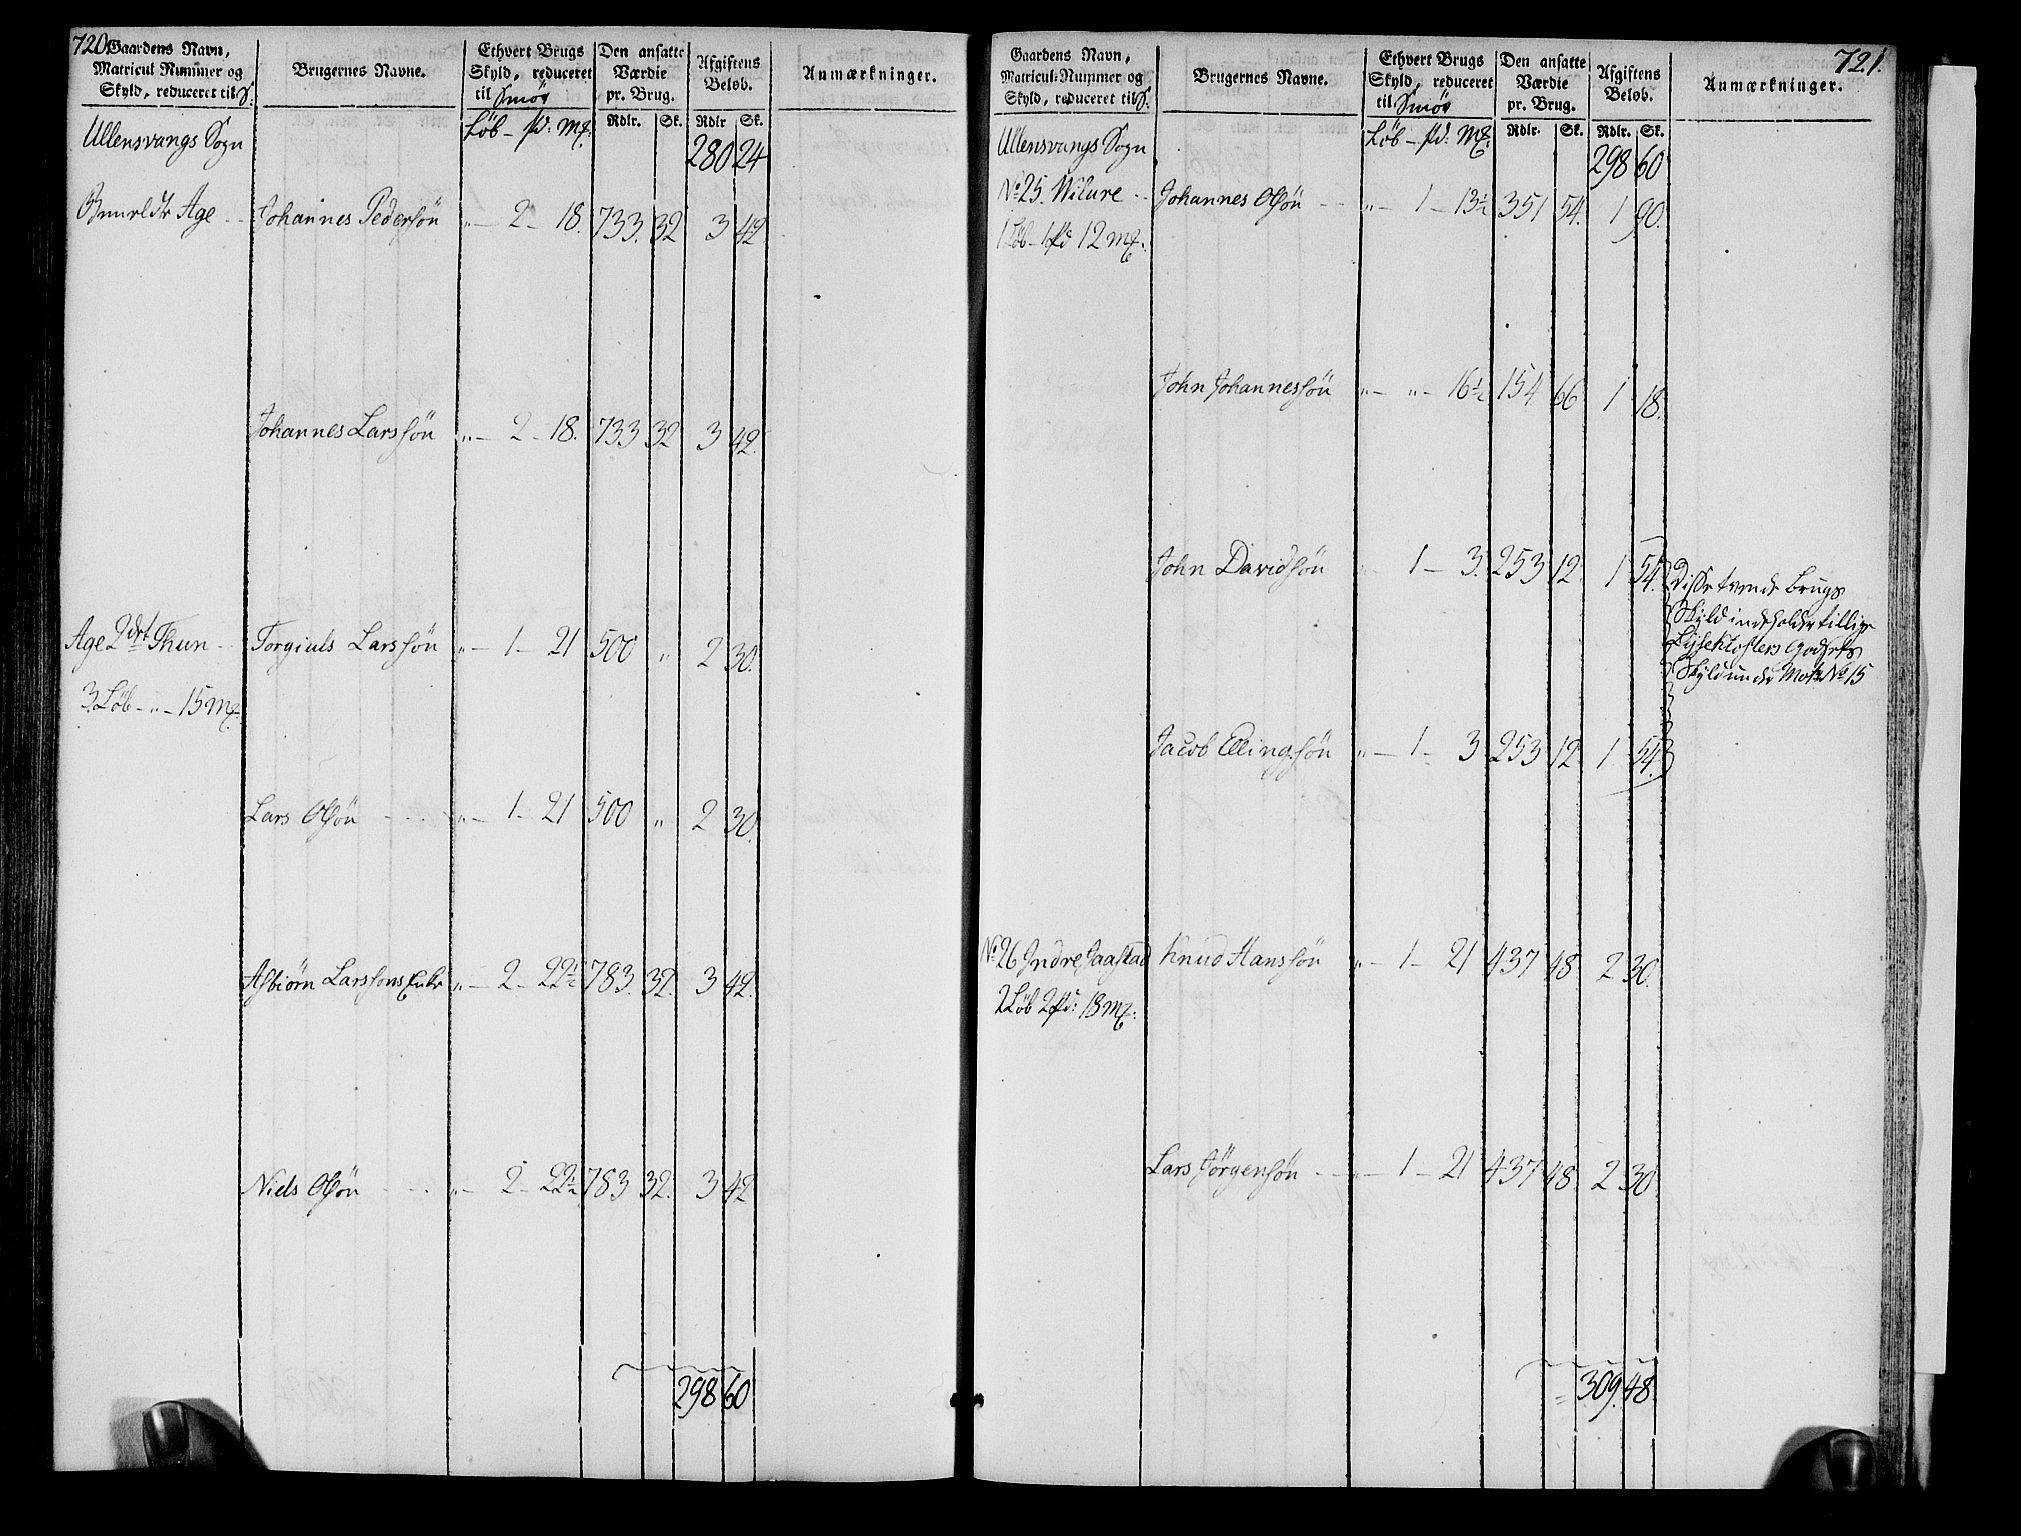 720.
Gaardens Navn,
Matricul Nummer og
Skyld, reduceret til S.
Brugernes Navne.
Ethvert Brugs
Skyld, reduceret
til Smör
Den ansatte
Værdie
pr. Brug.
Afgiftens
Beløb.
Anmærkninger.
Løb - pd: Mk.
Rdlr. Sk. Rdlr Sk.
Ullensvangs Sogn 280 24
Age Johannes Pedersön „ - 2 - 18. 733. 32 3 42
Johannes Larssön „ - 2 - 18. 733 32 3 42.
Age 2det Thun Torgiuls Larssön „ - 1 - 21 500 „ 2 30.
3. Løb - „ - 15 Mk.
Lars Olsön „ - 1 - 21 500 „ 2 30.
Asbiørn Larssons Enke „ - 2 - 22½ 783. 32. 3 42.
Niels Olsön „ - 2 - 22½ 783 32. 3 42
298 60
721.
Gaardens Navn,
Matricul-Nummer og
Skyld, reduceret til S.
Brugernes Navne.
Ethvert Brugs
Skyld, reduceret
til Smör
Den ansatte
Værdie
pr. Brug.
Afgiftens
Beløb.
Anmærkninger.
Løb - pd: Mk.
Rdlr. Sk. Rdlr. Sk.
Ullensvangs Sogn 298 60
No 25. Wilure Johannes Olsön „ - 1 - 13½ 351 54. 1 90.
1 Løb - 1 pd 12 Mk.
John Johannessön „ - „ - 16½ 154 66 1 18.
John Davidsön „ 1 - 3. 253 12. 1 54.
Disse tvende Brugs
Skyld indeholder tillige
Lysekloster Godsets
Skyld under Matr. No 15
Jacob Ellingsön „ - 1 - 3 253 12 1 54.
No 26 Indre Jaastad Knud Hanssön „ - 1 - 21 437 48 2 30.
2 Løb 2 pd: 18 Mk:
Lars Jörgensön „ - 1 - 21 437 48 2 30.
309. 48.